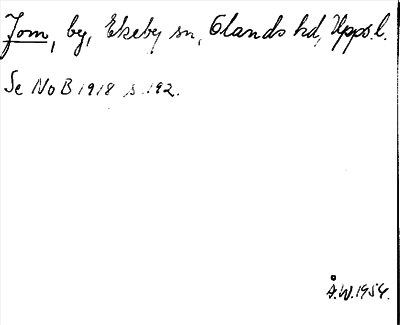 Jom, by, Ekeby sn, Olands hd, Upps.l.
Se NoB 1918 s. 192.
Å.W. 1954.